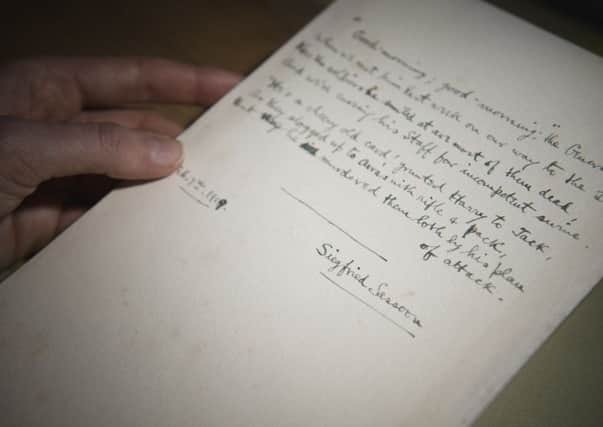 "Good-morning; good-morning," the Genera
When we met him last week on our way to the
Now the soldiers he smiled at are most of them dead,
And we're cursing his staff for incompetent swine.
"He's a cheery old card", grunted Harry to Jack,
As they slogged up to Arras with rifle & pack,
But he murdered them both by his plan
of attack.
1919.
Siegfried Sassoon